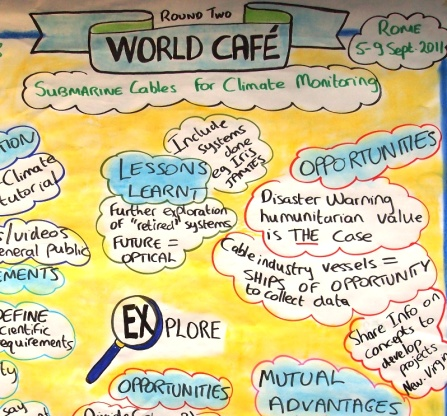 ROUND TWO
WORLD CAFÉ
ROME
5-9 Sept. 2011
SUBMARINE CABLES for CLIMATE MONITORING
-Climate
tutorial
/videos
eneral Public
EMENTS
DEFINE
cientific
equirements
LESSONS
LEARNT
Include
systems
done
eg Iris
Further exploration
of "retired" systems
FUTURE =
OPTICAL
OPPORTUNITIES
Disaster Warning
humanitarian value
is THE Case
Cable industry vessels =
SHIPS OF OPPORTUNITY
to collect data
EXPLORE
Share Info on
concepts to
develop
projects
New.
OPPORTUNITIES
MUTUAL
ADVANTAGES
say